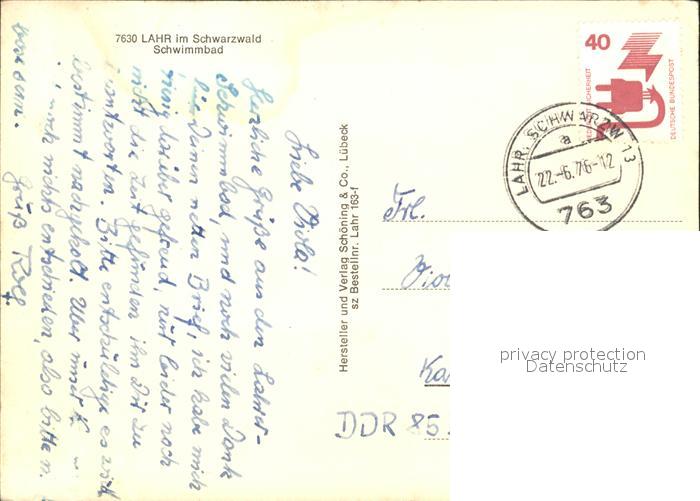 7630 LAHR im Schwarzwald
Schwimmbad
Liebe Viola!
Herzliche Grüße aus den Lahrer-
Schwimmbad, und noch vielen Dank
Deinen netten Brief, ich habe mich
riesig darüber gefreut, nur leider noch
nicht die Zeit gefunden ihn Dir zu
antworten. Bitte entschuldige es wird
bestimmt nachgeholt. Über unser
noch nichts entschieden, also bitte n.
böse sein.
Gruß Rolf
Hersteller und Verlag Schöning & Co., Lübeck
sz Bestellnr. Lahr 163-f
40
DEUTSCHE BUNDESPOST
LAHR, SCHWARZW 13
a
22.-6.76-12
763
Frl.
Vio
Ka
DDR 85.
privacy protection
Datenschutz